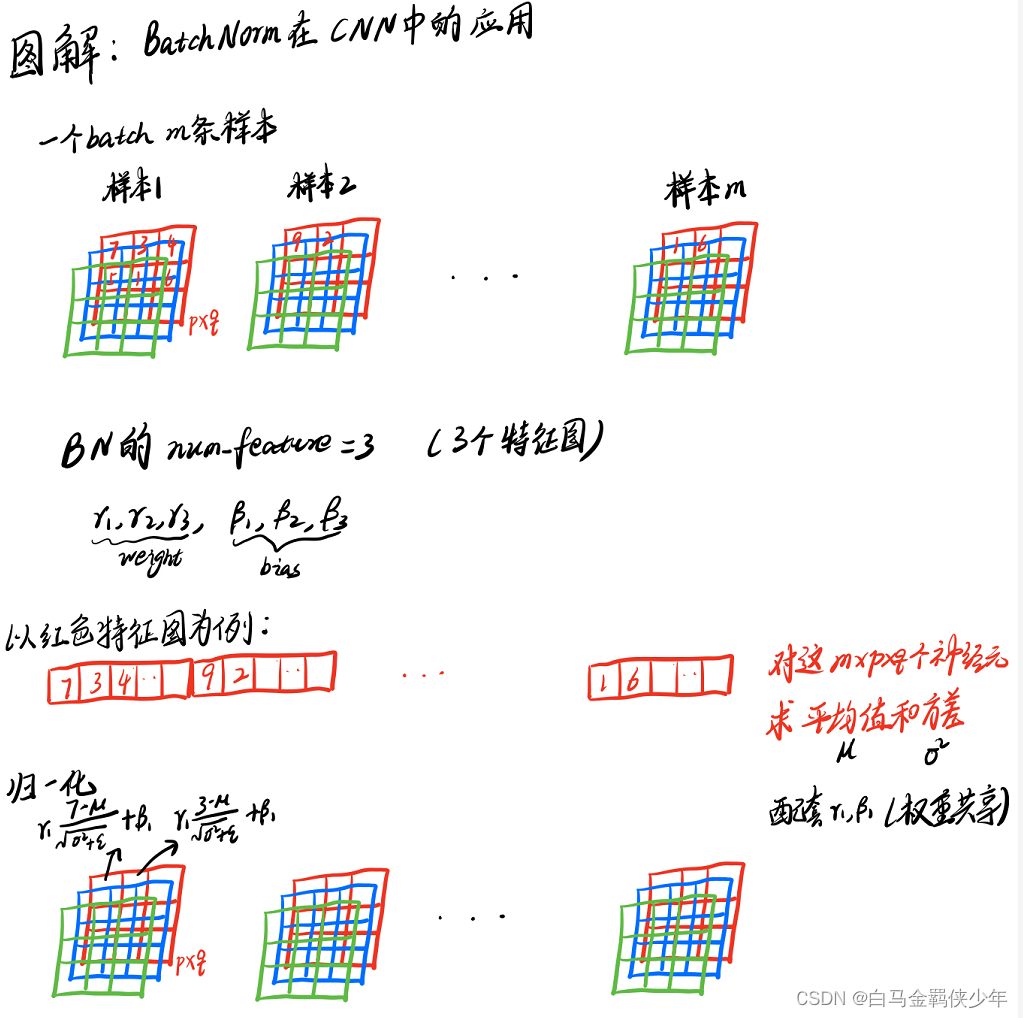 图解：BatchNorm在CNN中的应用
一个batch m条样本
样本1 样本2 样本m
7 3 4 9 2 1 6
5 1 6
. . .
p×q
BN的 num_feature=3 （3个特征图）
γ1,γ2,γ3, β1,β2,β3
weight bias
以红色特征图为例：
7 3 4 .. 9 2 .. ... 1 6 ..
对这m×p×q个神经元
求平均值和方差
μ σ²
归一化
γ1 (7-μ)/√(σ²+ε) +β1 γ1 (3-μ)/√(σ²+ε) +β1
配套γ1,β1（权重共享）
. . .
p×q
CSDN @白马金羁侠少年